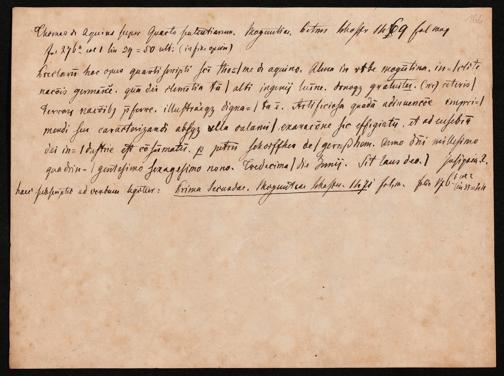 Thomas de Aquino super Quarto sententiarum. Moguntiae. Petrus Schoffer 1469 fol mag
fol 276ᵇ col 1 lin 29 = 50 ult: (in fine operis)
Preclarū hoc opus quarti scripti scī tho= | me de aquino. Alma in urbe magūtina. in= | clite
nacōis germāice. quā dei clemētia tā | alti ingenij lumīe. donoqȝ gratuitus. (sic) ceteris |
terrarū nacōibȝ p̄ferre. illustrareqȝ digna= | ta ē. Artificiosa quadā adinuencōe impri= |
mendi seu caracterizandi absqȝ ulla calami | exaracōne sic effigiatū. et ad eusebiā
dei in= | dustrie est cōsumatū. p petrū schoiffher de | gernsshem. Anno dn̄i millesimo
quadrin= | gentesimo sexagesimo nono. Tredecima | die Junij. Sit laus deo. |
haec subscriptio ad verbum legitur: Prima Secundae. Moguntiae Schoffer. 1471 fol.